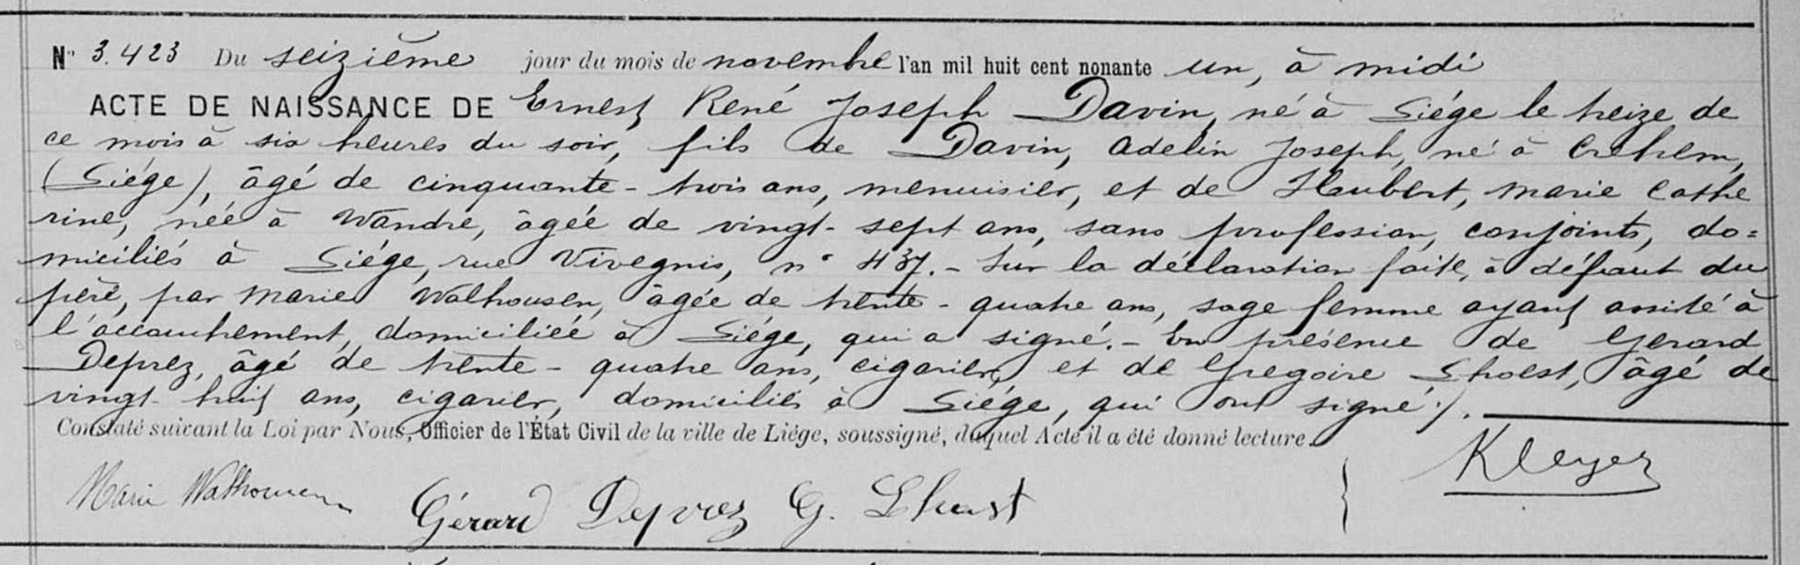 N° 3.423 Du seizième jour du mois de novembre l'an mil huit cent nonante un, à midi
ACTE DE NAISSANCE DE Ernest René Joseph Davin, né à Liége le treize de
ce mois à six heures du soir, fils de Davin, Adelin Joseph, né à Crehem,
(Liége), âgé de cinquante-trois ans, menuisier, et de Haubert, Marie Cathe
rine, née à Wandre, âgée de vingt-sept ans, sans profession, conjoints, do=
miciliés à Liége, rue Vivegnis, n° 437.- Sur la déclaration faite, à défaut du
père, par Marie Walhousen, âgée de trente-quatre ans, sage femme ayant assisté à
l'accouchement, domiciliée à Liége, qui a signé.- En présence de Gerard
Deprez, âgé de trente-quatre ans, cigarier, et de Gregoire Lhoest, âgé de
vingt-huit ans, cigarier, domiciliés à Liége, qui ont signé ).
Constaté suivant la Loi par Nous, Officier de l'État Civil de la ville de Liége, soussigné, duquel Acte il a été donné lecture.
Kleyer
Marie Walhousen Gérard Deprez G. Lhoest